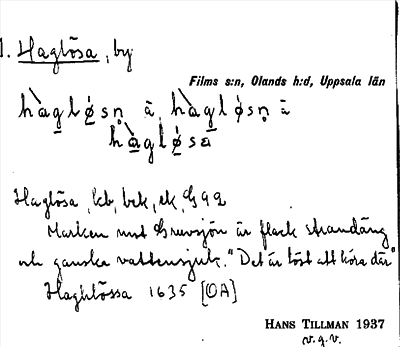 1. Haglösa, by
Films s:n, Olands h:d, Uppsala län
hàgløsn̥ ä, hàgløsn̥ ä
hàgløsä
Haglösa, kb, bek, ek, G 92
Marken mot Gruvsjön är flack strandäng
och ganska vattensjuk. "Det är löst att köra där"
Haghlössa 1635 [OA]
HANS TILLMAN 1937
v.g.v.